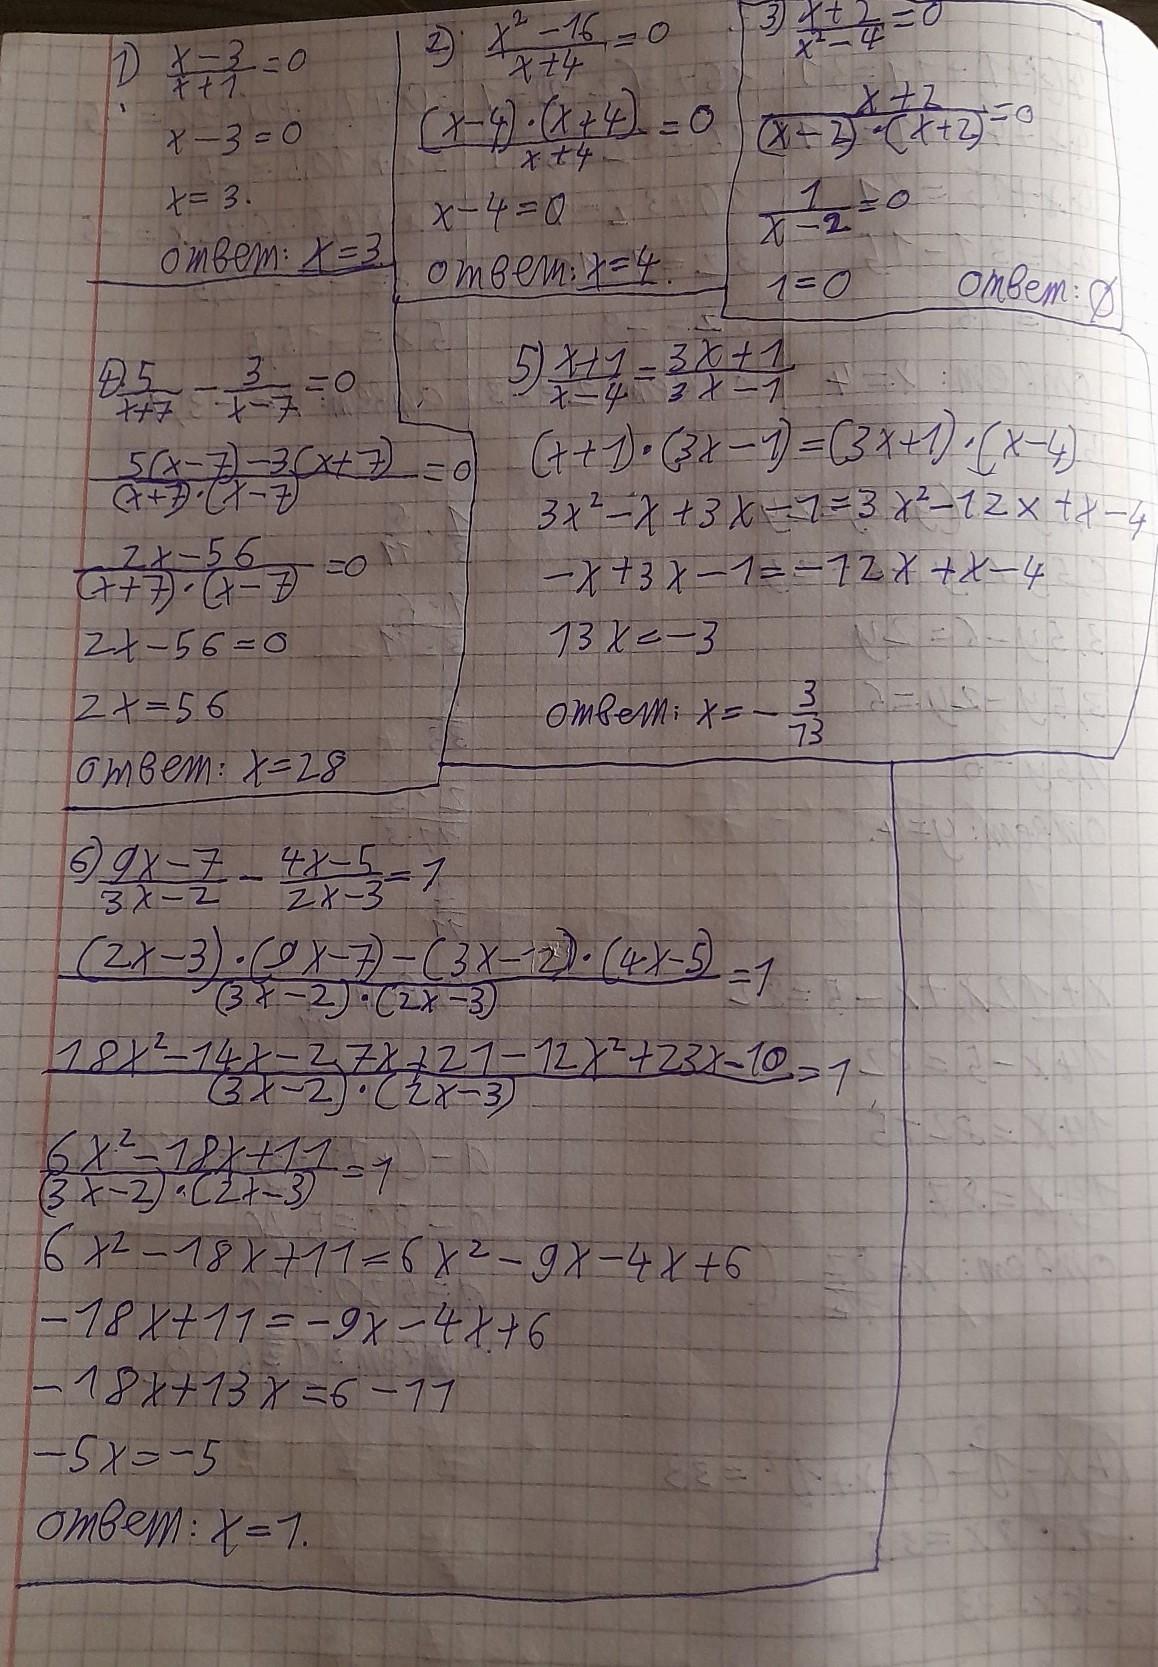 1) (x-3)/(x+1)=0
x-3=0
x=3.
ответ: x=3
2) (x²-16)/(x+4)=0
((x-4)·(x+4))/(x+4)=0
x-4=0
ответ: x=4.
3) (x+2)/(x²-4)=0
(x+2)/((x-2)·(x+2))=0
1/(x-2)=0
1=0 ответ: ∅
4) 5/(x+7) - 3/(x-7)=0
(5(x-7)-3(x+7))/((x+7)·(x-7))=0
(2x-56)/((x+7)·(x-7))=0
2x-56=0
2x=56
ответ: x=28
5) (x+1)/(x-4)=(3x+1)/(3x-1)
(x+1)·(3x-1)=(3x+1)·(x-4)
3x²-x+3x-1=3x²-12x+x-4
-x+3x-1=-12x+x-4
13x=-3
ответ: x=-3/13
6) (9x-7)/(3x-2) - (4x-5)/(2x-3)=1
((2x-3)·(9x-7)-(3x-12)·(4x-5))/((3x-2)·(2x-3))=1
(18x²-14x-27x+21-12x²+23x-10)/((3x-2)·(2x-3))=1
(6x²-18x+11)/((3x-2)·(2x-3))=1
6x²-18x+11=6x²-9x-4x+6
-18x+11=-9x-4x+6
-18x+13x=6-11
-5x=-5
ответ: x=1.